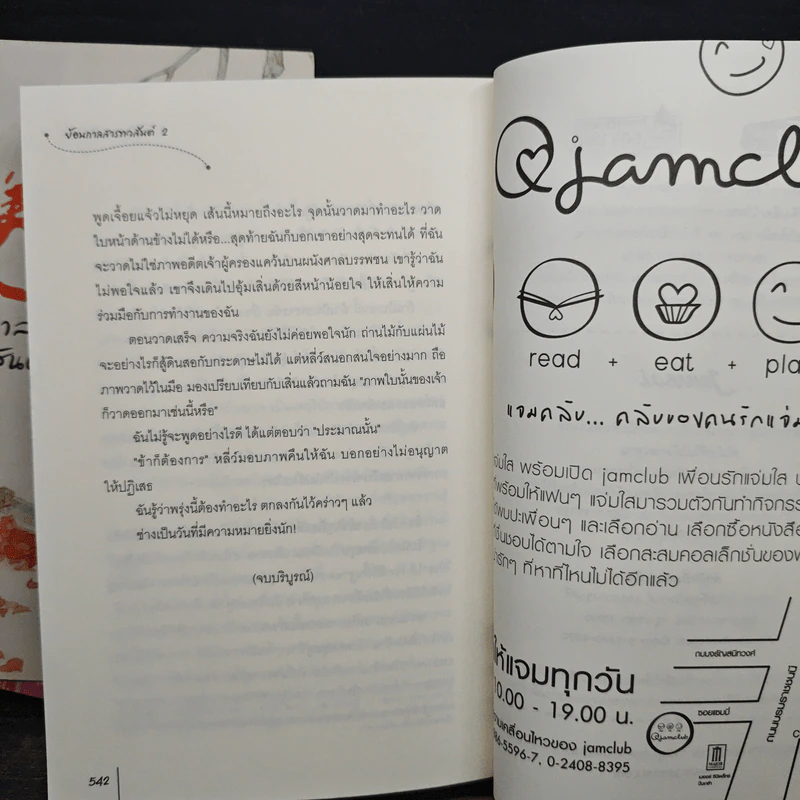 ย้อนกาลสารทวสันต์ 2
พูดเจื้อยแจ้วไม่หยุด เส้นนี้หมายถึงอะไร จุดนั้นวาดมาทำอะไร วาด
ใบหน้าด้านข้างไม่ได้หรือ...สุดท้ายฉันก็บอกเขาอย่างสุดจะทนได้ ที่ฉัน
จะวาดไม่ใช่ภาพอดีตเจ้าผู้ครองแคว้นบนผนังศาลบรรพชน เขารู้ว่าฉัน
ไม่พอใจแล้ว เขาจึงเดินไปอุ้มเสิ่นด้วยสีหน้าน้อยใจ ให้เสิ่นให้ความ
ร่วมมือกับการทำงานของฉัน
ตอนวาดเสร็จ ความจริงฉันยังไม่ค่อยพอใจนัก ถ่านไม้กับแผ่นไม้
จะอย่างไรก็สู้ดินสอกับกระดาษไม่ได้ แต่หลี่ว์สนอกสนใจอย่างมาก ถือ
ภาพวาดไว้ในมือ มองเปรียบเทียบกับเสิ่นแล้วถามฉัน "ภาพใบนั้นของเจ้า
ก็วาดออกมาเช่นนี้หรือ"
ฉันไม่รู้จะพูดอย่างไรดี ได้แต่ตอบว่า "ประมาณนั้น"
"ข้าก็ต้องการ" หลี่ว์มอบภาพคืนให้ฉัน บอกอย่างไม่อนุญาต
ให้ปฏิเสธ
ฉันรู้ว่าพรุ่งนี้ต้องทำอะไร ตกลงกันไว้คร่าวๆ แล้ว
ช่างเป็นวันที่มีความหมายยิ่งนัก!
(จบบริบูรณ์)
542
@jamclu
read + eat + pla
แจมคลับ... คลับของคนรักแจ่ม
จ่มใส พร้อมเปิด jamclub เพื่อนรักแจ่มใส
พร้อมให้แฟนๆ แจ่มใสมารวมตัวกันทำกิจกรร
พบปะเพื่อนๆ และเลือกอ่าน เลือกซื้อหนังสือ
ชื่นชอบได้ตามใจ เลือกสะสมคอลเล็กชั่นของ
รักๆ ที่หาที่ไหนไม่ได้อีกแล้ว
ให้แจมทุกวัน
10.00 - 19.00 น.
ามเคลื่อนไหวของ jamclub
86-5596-7, 0-2408-8395
ถนนจรัญสนิทวงศ์
ซอยแซมมี่
@jamclub